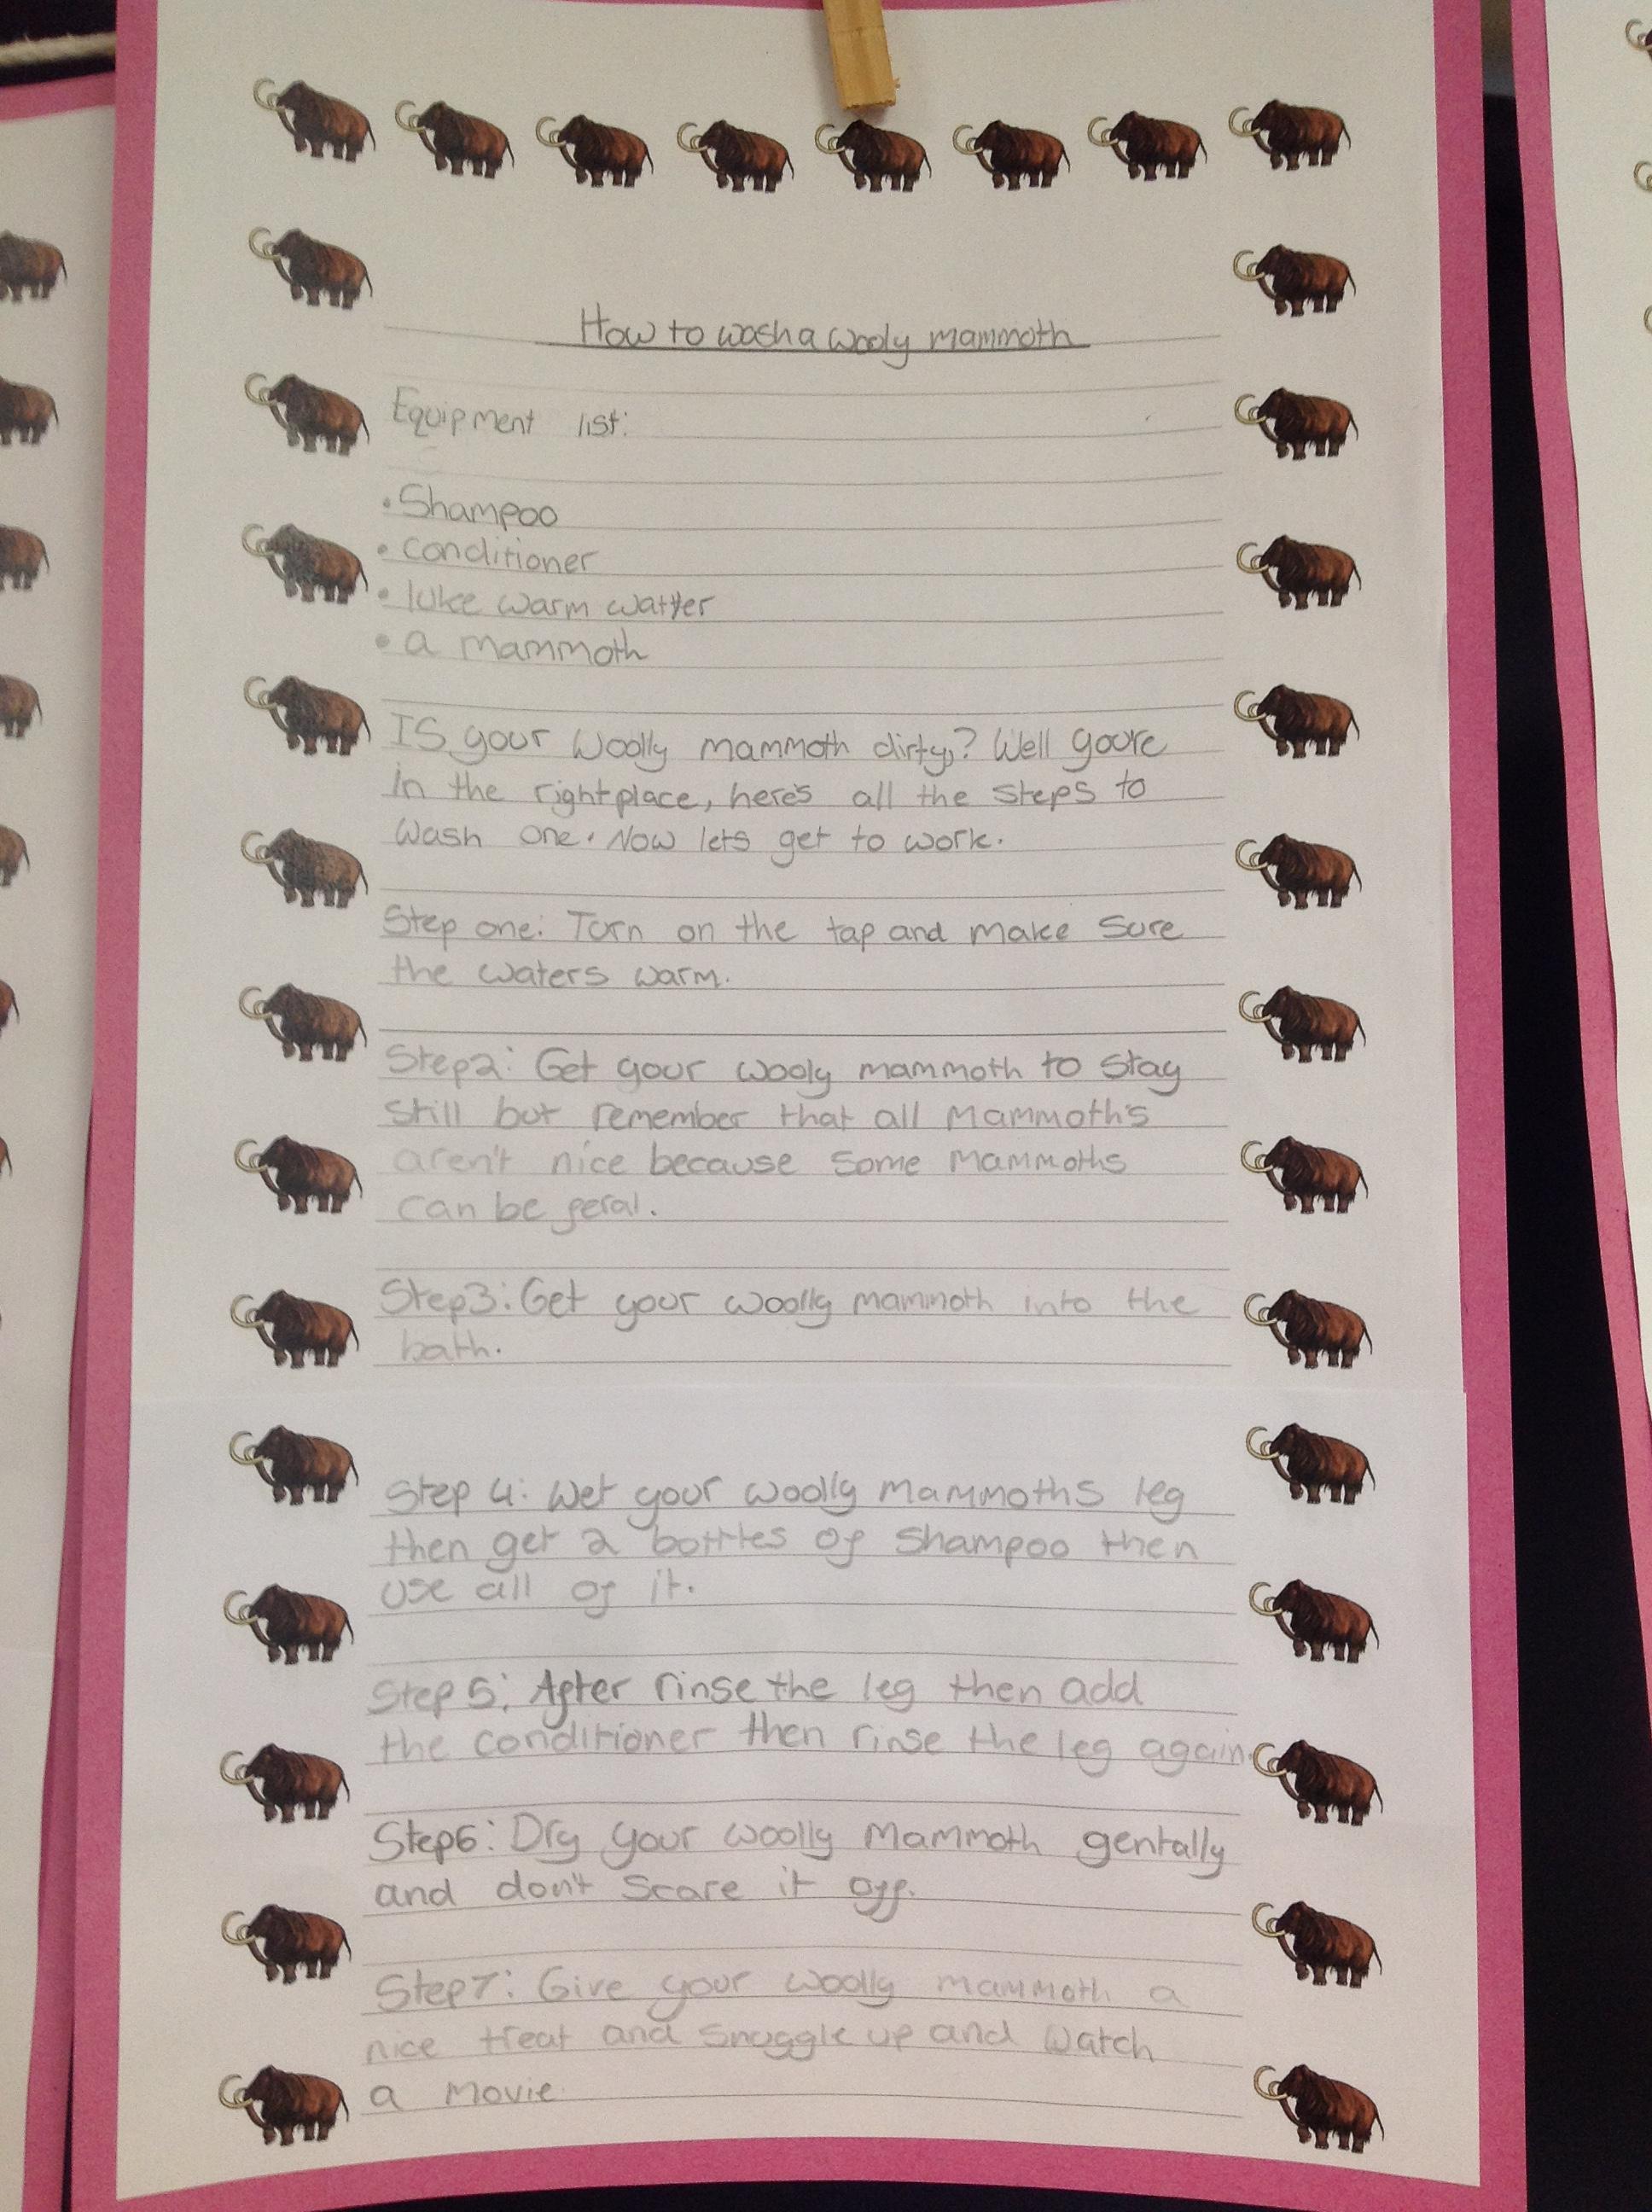 How to wash a wooly mammoth
Equipment list:
• Shampoo
• conditioner
• luke warm watter
• a mammoth
IS your woolly mammoth dirty? Well youre
in the right place, here's all the steps to
wash one. Now lets get to work.
Step one: Turn on the tap and make sure
the waters warm.
Step2: Get your wooly mammoth to stay
still but remember that all mammoth's
aren't nice because some mammoths
can be feral.
Step3: Get your woolly mammoth into the
bath.
Step 4: Wet your woolly mammoths leg
then get 2 bottles of shampoo then
use all of it.
Step 5: After rinse the leg then add
the conditioner then rinse the leg again.
Step6: Dry your woolly mammoth gentally
and don't scare it off.
Step7: Give your woolly mammoth a
nice treat and snuggle up and watch
a movie.